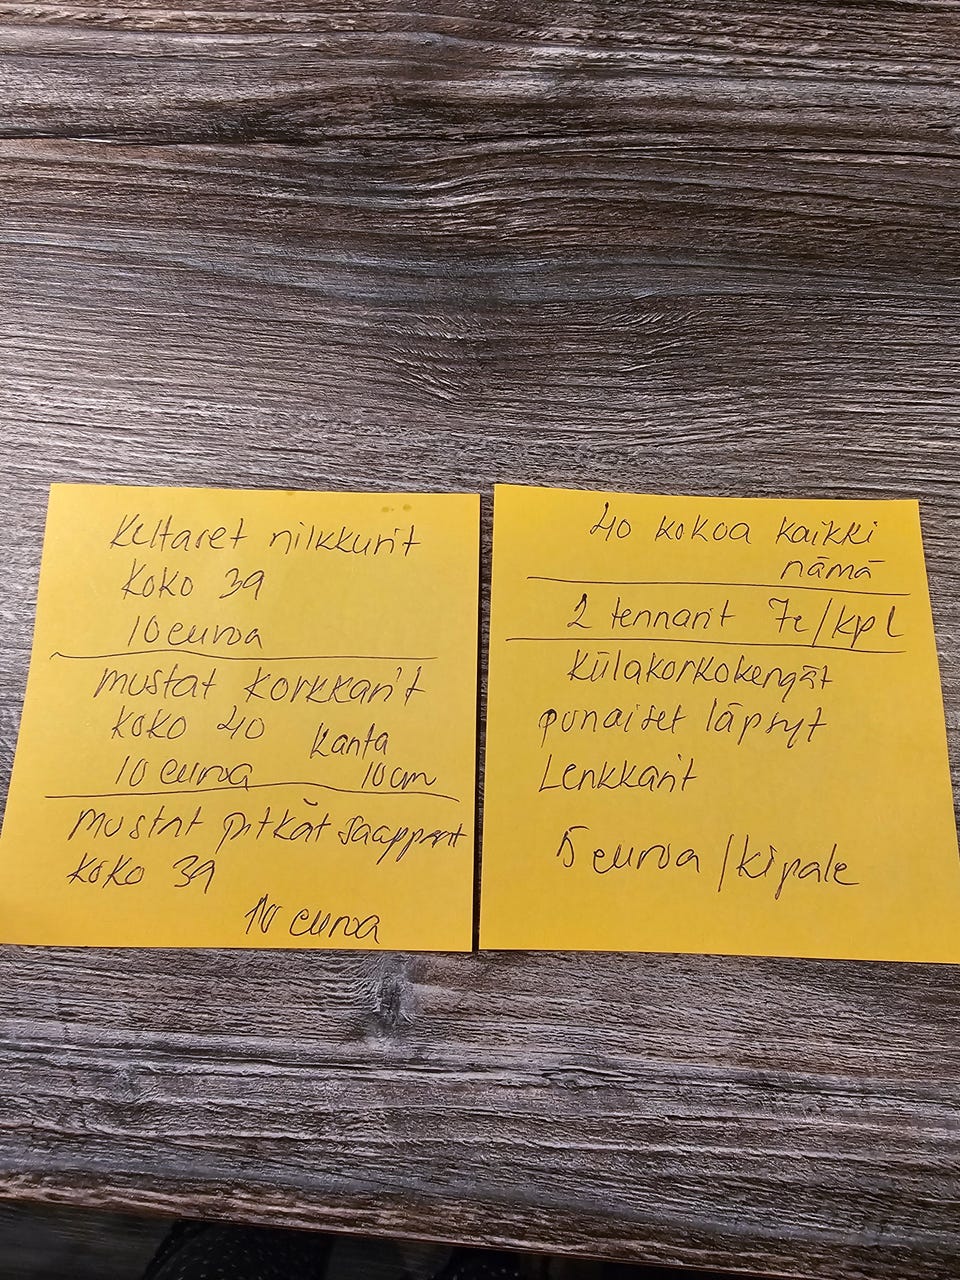 Keltaset nilkkurit
Koko 39
10 euroa
mustat korkkarit
koko 40
kanta
10 euroa 10cm
mustat pitkät saappaat
koko 39
10 euroa
40 kokoa kaikki
nämä
2 tennarit 7e/kpl
Kiilakorkokengät
punaiset läpsyt
Lenkkarit
5 euroa /kipale